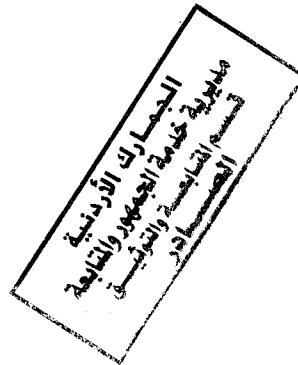 الجمارك الأردنية
مديرية خدمة الجمهور والمتابعة
قسم المتابعة والتوثيق
الصادر